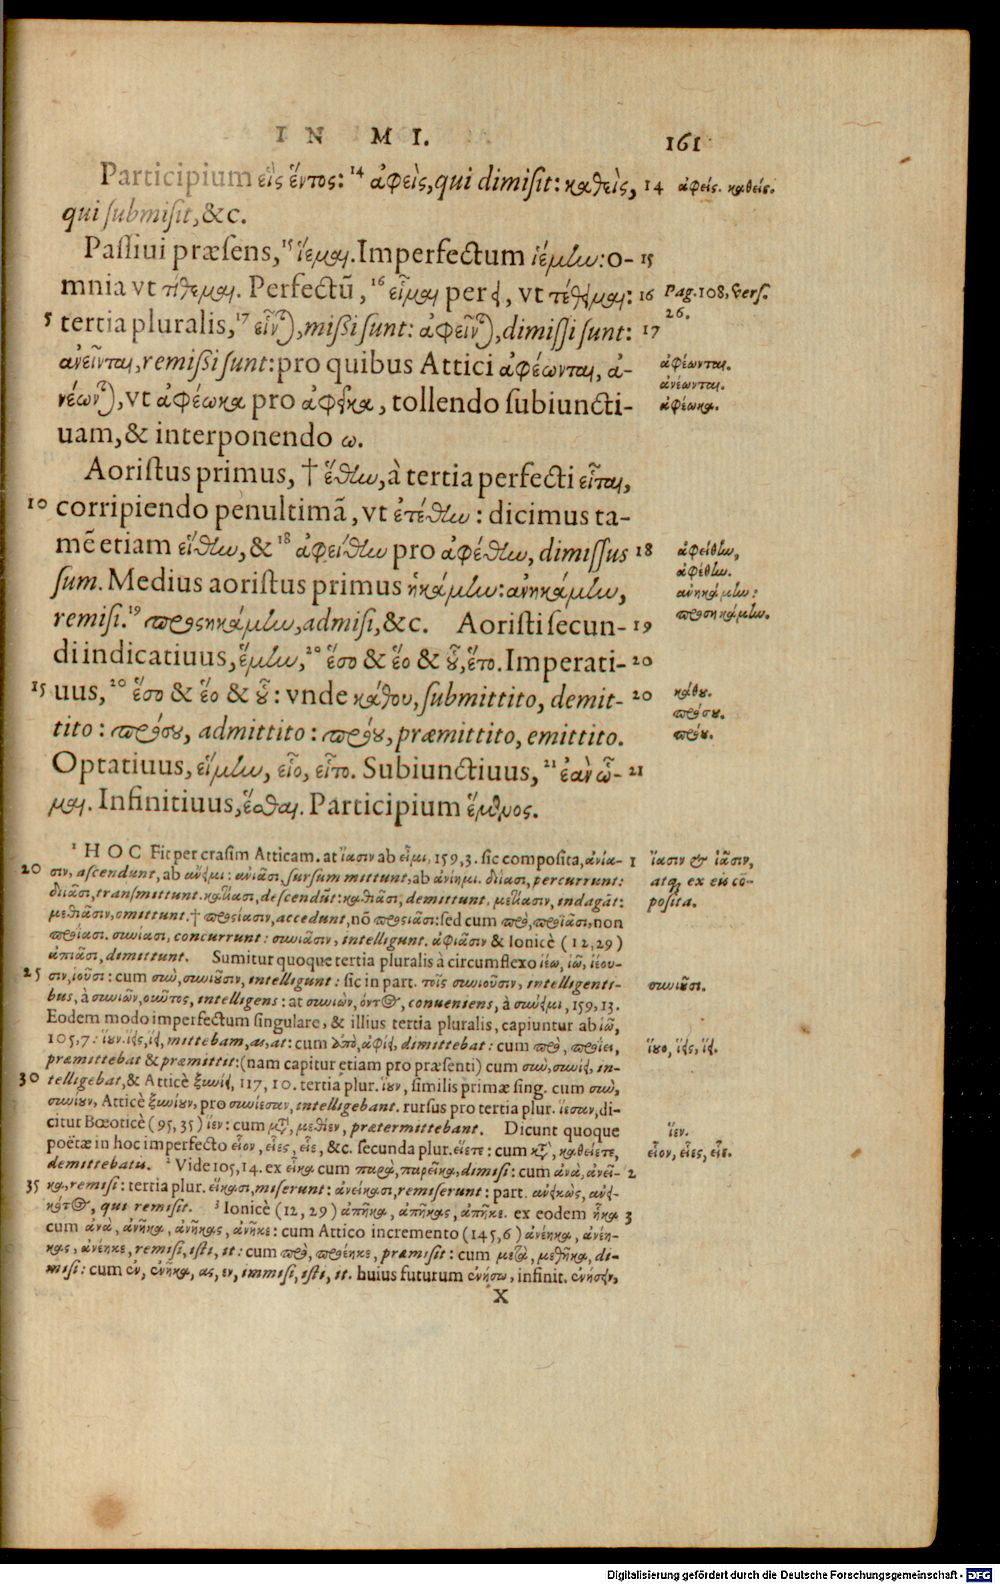 IN MI. 161
Participium εἱς ἕντος: 14 ἀφεὶς, qui dimisit: καθεὶς, 14 ἀφείς. καθείς.
qui submisit, &c.
Passiui præsens, 15 ἵεμαι. Imperfectum ἱέμην: o- 15
mnia vt τίθεμαι. Perfectū, 16 εἷμαι per ει, vt τέθειμαι: 16 Pag. 108, Vers.
26.
5 tertia pluralis, 17 εἷνται, missi sunt: ἀφεῖνται, dimissi sunt: 17
ἀνεῖνται, remissi sunt: pro quibus Attici ἀφέωνται, ἀ- ἀφέωνται.
ἀνέωνται.
νέωνται, vt ἀφέωκα pro ἀφεῖκα, tollendo subiuncti- ἀφέωκα.
uam, & interponendo ω.
Aoristus primus, † ἕθην, à tertia perfecti εἷται,
10 corripiendo penultimā, vt ἐτέθην: dicimus ta-
mē etiam εἵθην, & 18 ἀφείθην pro ἀφέθην, dimissus 18 ἀφείθην,
ἀφέθην.
sum. Medius aoristus primus ἡκάμην: ἀνηκάμην, ἀνηκάμην:
remisi. 19 προσηκάμην, admisi, &c. Aoristi secun- 19 προσηκάμην.
di indicatiuus, ἕμην, 20 ἕσο & ἕο & οὗ, ἕτο. Imperati- 20
15 uus, 20 ἕσο & ἕο & οὗ: vnde κάθου, submittito, demit- 20 κάθου.
πρόσου.
tito: πρόσου, admittito: πρόου, præmittito, emittito. πρόου.
Optatiuus, εἵμην, εἷο, εἷτο. Subiunctiuus, 21 ἐὰν ὧ- 21
μαι. Infinitiuus, ἕσθαι. Participium ἕμενος.
1 HOC Fit per crasim Atticam. at ἴασιν ab εἶμι, 159, 3. sic composita, ἀνία- 1 ἴασιν & ἱᾶσιν,
20 σιν, ascendunt, ab ἄνειμι: ἀνιᾶσι, sursum mittunt, ab ἀνίημι. διίασι, percurrunt: atq; ex eis cō-
διιᾶσι, transmittunt. κατίασι, descendūt: καθιᾶσι, demittunt. μετίασιν, indagāt: posita.
μεθιᾶσιν, omittunt. † προσίασιν, accedunt, nō προσιᾶσι: sed cum πρὸ, προϊᾶσι, non
προΐασι. συνίασι, concurrunt: συνιᾶσιν, intelligunt. ἀφιᾶσιν & Ionicè (12, 29)
ἀπιᾶσι, dimittunt. Sumitur quoque tertia pluralis à circumflexo ἱέω, ἱῶ, ἱέου-
25 σιν, ἱοῦσι: cum σὺν, συνιοῦσιν, intelligunt: sic in part. τοῖς συνιοῦσιν, intelligenti- συνιοῦσι.
bus, à συνιῶν, οῦντος, intelligens: at συνιὼν, όντος, conueniens, à σύνειμι, 159, 13.
Eodem modo imperfectum singulare, & illius tertia pluralis, capiuntur ab ἱῶ,
105, 7: ἵουν, ἵεις, ἵει, mittebam, as, at: cum ἀπὸ, ἀφίει, dimittebat: cum πρὸ, προΐει, ἵουν, ἵεις, ἵει.
præmittebat & præmittit: (nam capitur etiam pro præsenti) cum σὺν, συνίει, in-
30 telligebat, & Atticè ξυνίει, 117, 10. tertia plur. ἵουν, similis primæ sing. cum σὺν,
συνίουν, Atticè ξυνίουν, pro συνίεσαν, intelligebant. rursus pro tertia plur. ἵεσαν, di-
citur Bœoticè (95, 35) ἵεν: cum μετὰ, μεθίεν, prætermittebant. Dicunt quoque ἵεν.
poëtæ in hoc imperfecto εἷον, εἷες, εἷε, &c. secunda plur. εἵετε: cum κατὰ, καθείετε, εἷον, εἷες, εἷε.
demittebatis. 2 Vide 105, 14. ex εἷκα cum παρὰ, παρεῖκα, dimisi: cum ἀνὰ, ἀνεῖ- 2
35 κα, remisi: tertia plur. εἵκασι, miserunt: ἀνείκασι, remiserunt: part. ἀνεικὼς, ἀνει-
κότος, qui remisit. 3 Ionicè (12, 29) ἀπῆκα, ἀπῆκας, ἀπῆκε. ex eodem ἧκα 3
cum ἀνὰ, ἀνῆκα, ἀνῆκας, ἀνῆκε: cum Attico incremento (145, 6) ἀνέηκα, ἀνέη-
κας, ἀνέηκε, remisi, isti, it: cum πρὸ, προέηκε, præmisit: cum μετὰ, μεθῆκα, di-
misi: cum ἐν, ἐνῆκα, ας, εν, immisi, isti, it. huius futurum ἐνήσω, infinit. ἐνήσειν,
X
Digitalisierung gefördert durch die Deutsche Forschungsgemeinschaft - DFG